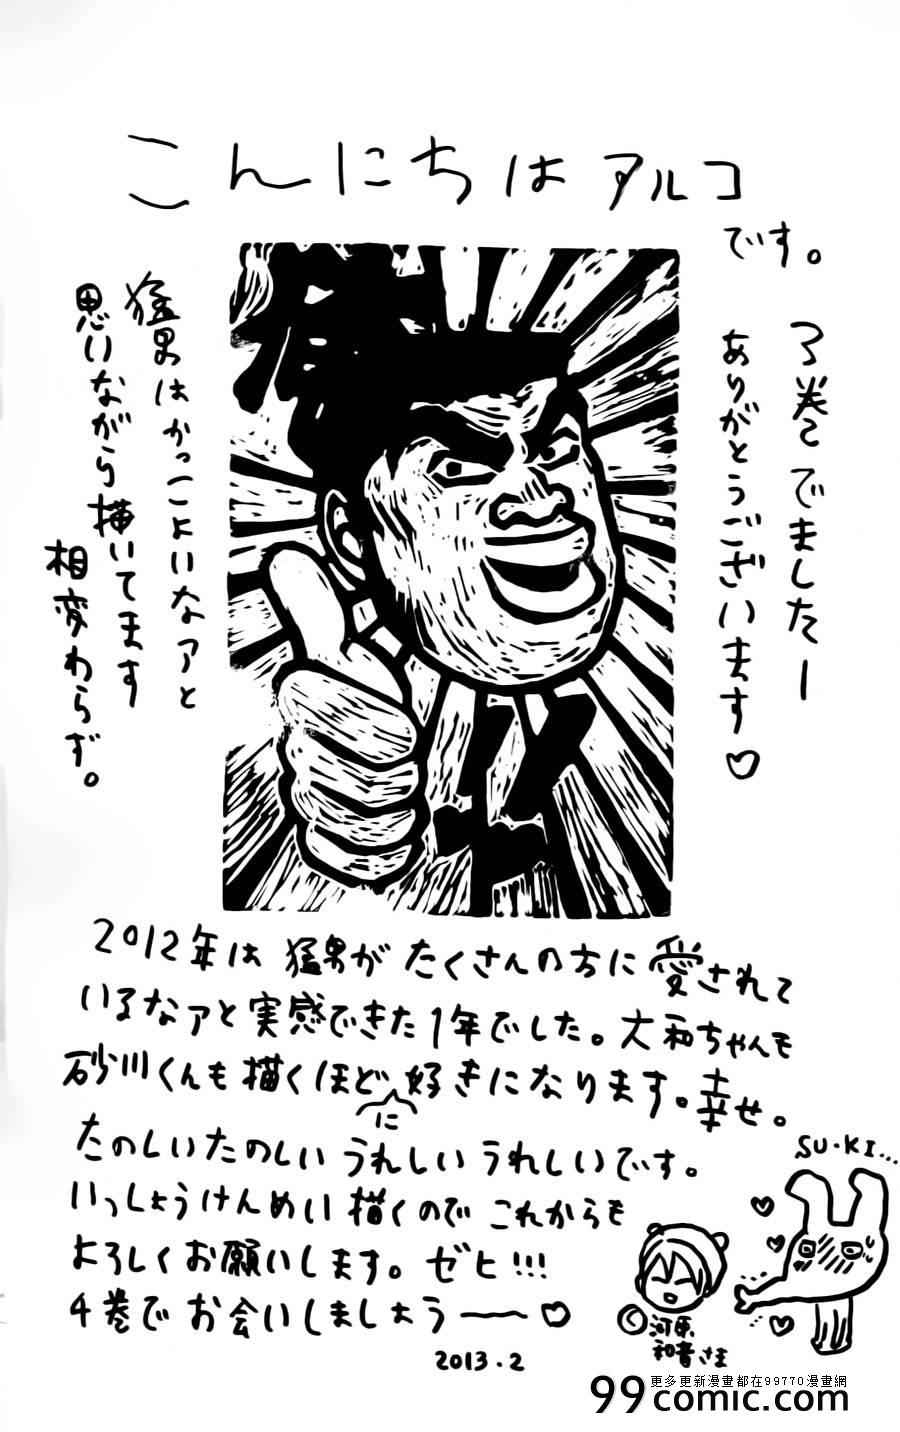 こんにちは アルコ
です。
3巻でましたー
ありがとうございます♡
猛男はかっこよいなァと
思いながら描いてます
相変わらず。
2012年は 猛男が たくさんの方に 愛されて
いるなァと実感できた1年でした。大和ちゃんも
砂川くんも描くほどに好きになります。幸せ。
たのしいたのしい うれしい うれしいです。
いっしょうけんめい 描くので これからも
よろしくお願いします。ゼヒ!!!
4巻で お会いしましょう——♡
2013.2
SU・KI...
©河原
和音さま
更多更新漫畫都在99770漫畫網
99comic.com